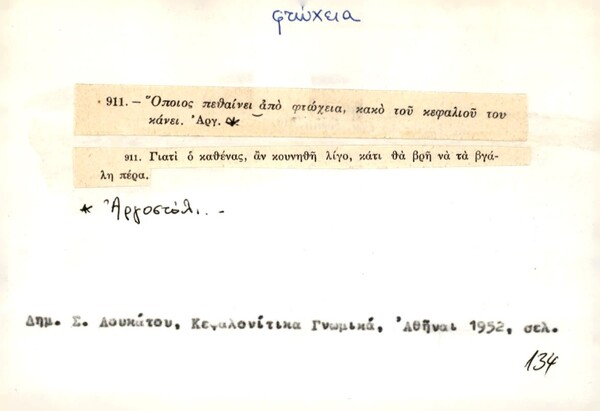 φτώχεια
911. – Ὅποιος πεθαίνει ἀπὸ φτώχεια, κακὸ τοῦ κεφαλιοῦ του
κάνει. Ἀργ. *
911. Γιατὶ ὁ καθένας, ἂν κουνηθῆ λίγο, κάτι θὰ βρῆ νὰ τὰ βγά-
λη πέρα.
* Ἀργοστόλι. -
Δημ. Σ. Λουκάτου, Κεφαλονίτικα Γνωμικά, Ἀθῆναι 1952, σελ.
134